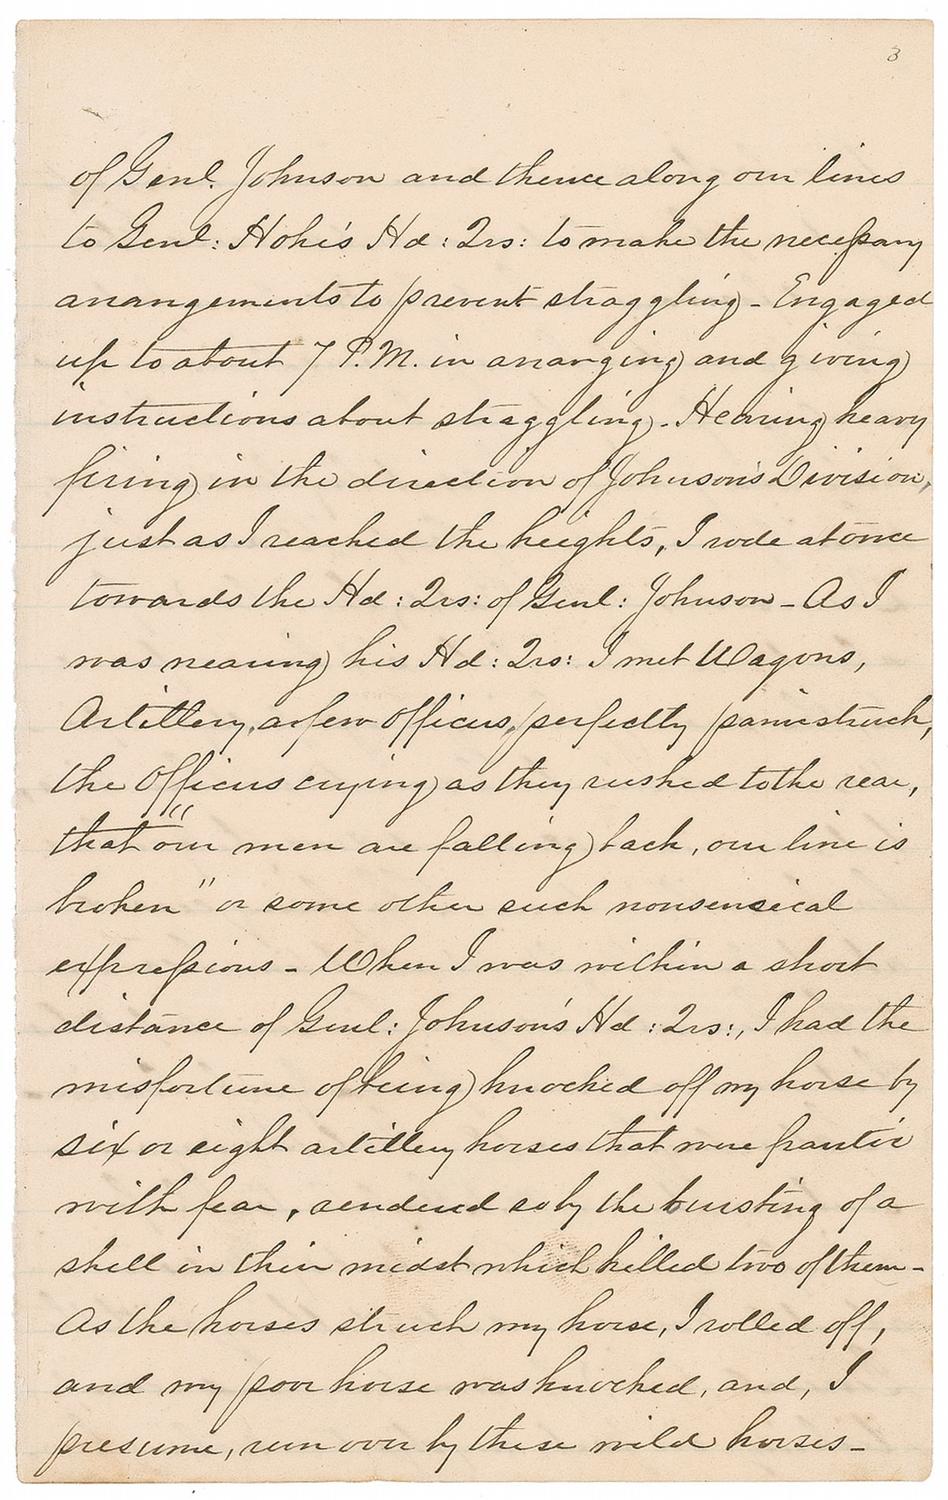 3
of Genl. Johnson and thence along our lines
to Genl: Hoke's Hd: Qrs: to make the necessary
arrangements to prevent straggling - Engaged
up to about 7 P.M. in arranging and giving
instructions about straggling. Hearing heavy
firing in the direction of Johnson's Division,
just as I reached the heights, I rode at once
towards the Hd: Qrs: of Genl: Johnson - As I
was nearing his Hd: Qrs: I met Wagons,
Artillery, a few Officers, perfectly panicstruck,
the Officers crying as they rushed to the rear,
that "our men are falling back, our line is
broken" or some other such nonsensical
expressions - When I was within a short
distance of Genl: Johnson's Hd: Qrs:, I had the
misfortune of being knocked off my horse by
six or eight artillery horses that were frantic
with fear, rendered so by the bursting of a
shell in their midst which killed two of them -
As the horses struck my horse, I rolled off,
and my poor horse was knocked, and, I
presume, run over by these wild horses -